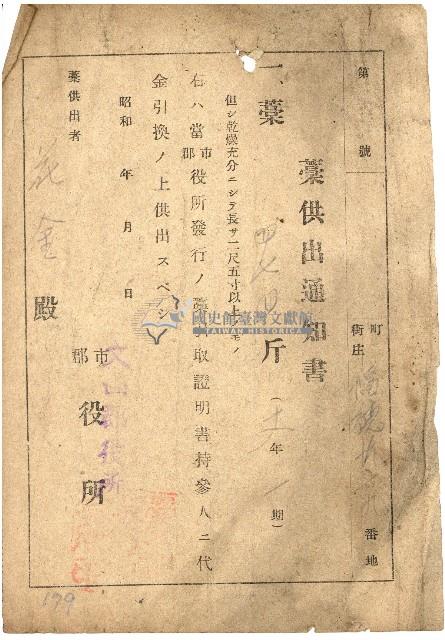 第　號
町
街庄　番地
藁供出通知書
一、藁　斤（　年　期）
但シ乾燥充分ニシテ長サ二尺五寸以上ノモノ
右ハ當市郡役所發行ノ藁引取證明書持參人ニ代
金引換ノ上供出スベシ
昭和　年　月　日
市
郡　役所
文山郡役所
藁供出者　金　殿
國史館臺灣文獻館
TAIWAN HISTORICA
179